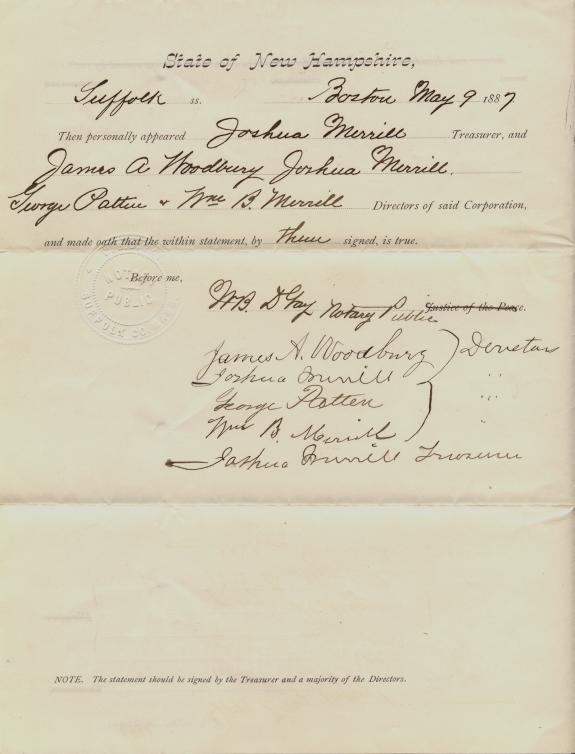 State of New Hampshire,
Suffolk ss. Boston May 9 1887
Then personally appeared Joshua Merrill Treasurer, and
James A Woodbury Joshua Merrill.
George Patten & Wm B. Merrill Directors of said Corporation,
and made oath that the within statement, by them signed, is true.
NOTARY PUBLIC
SUFFOLK CO.
Before me,
Notary Public Justice of the Peace.
James A. Woodbury Directors
Joshua Merrill "
George Patten "
Wm B. Merrill "
Joshua Merrill Treasurer
NOTE. The statement should be signed by the Treasurer and a majority of the Directors.